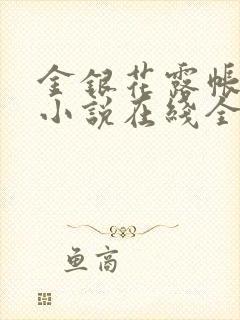 金银花露帐
小说在线全
鱼高